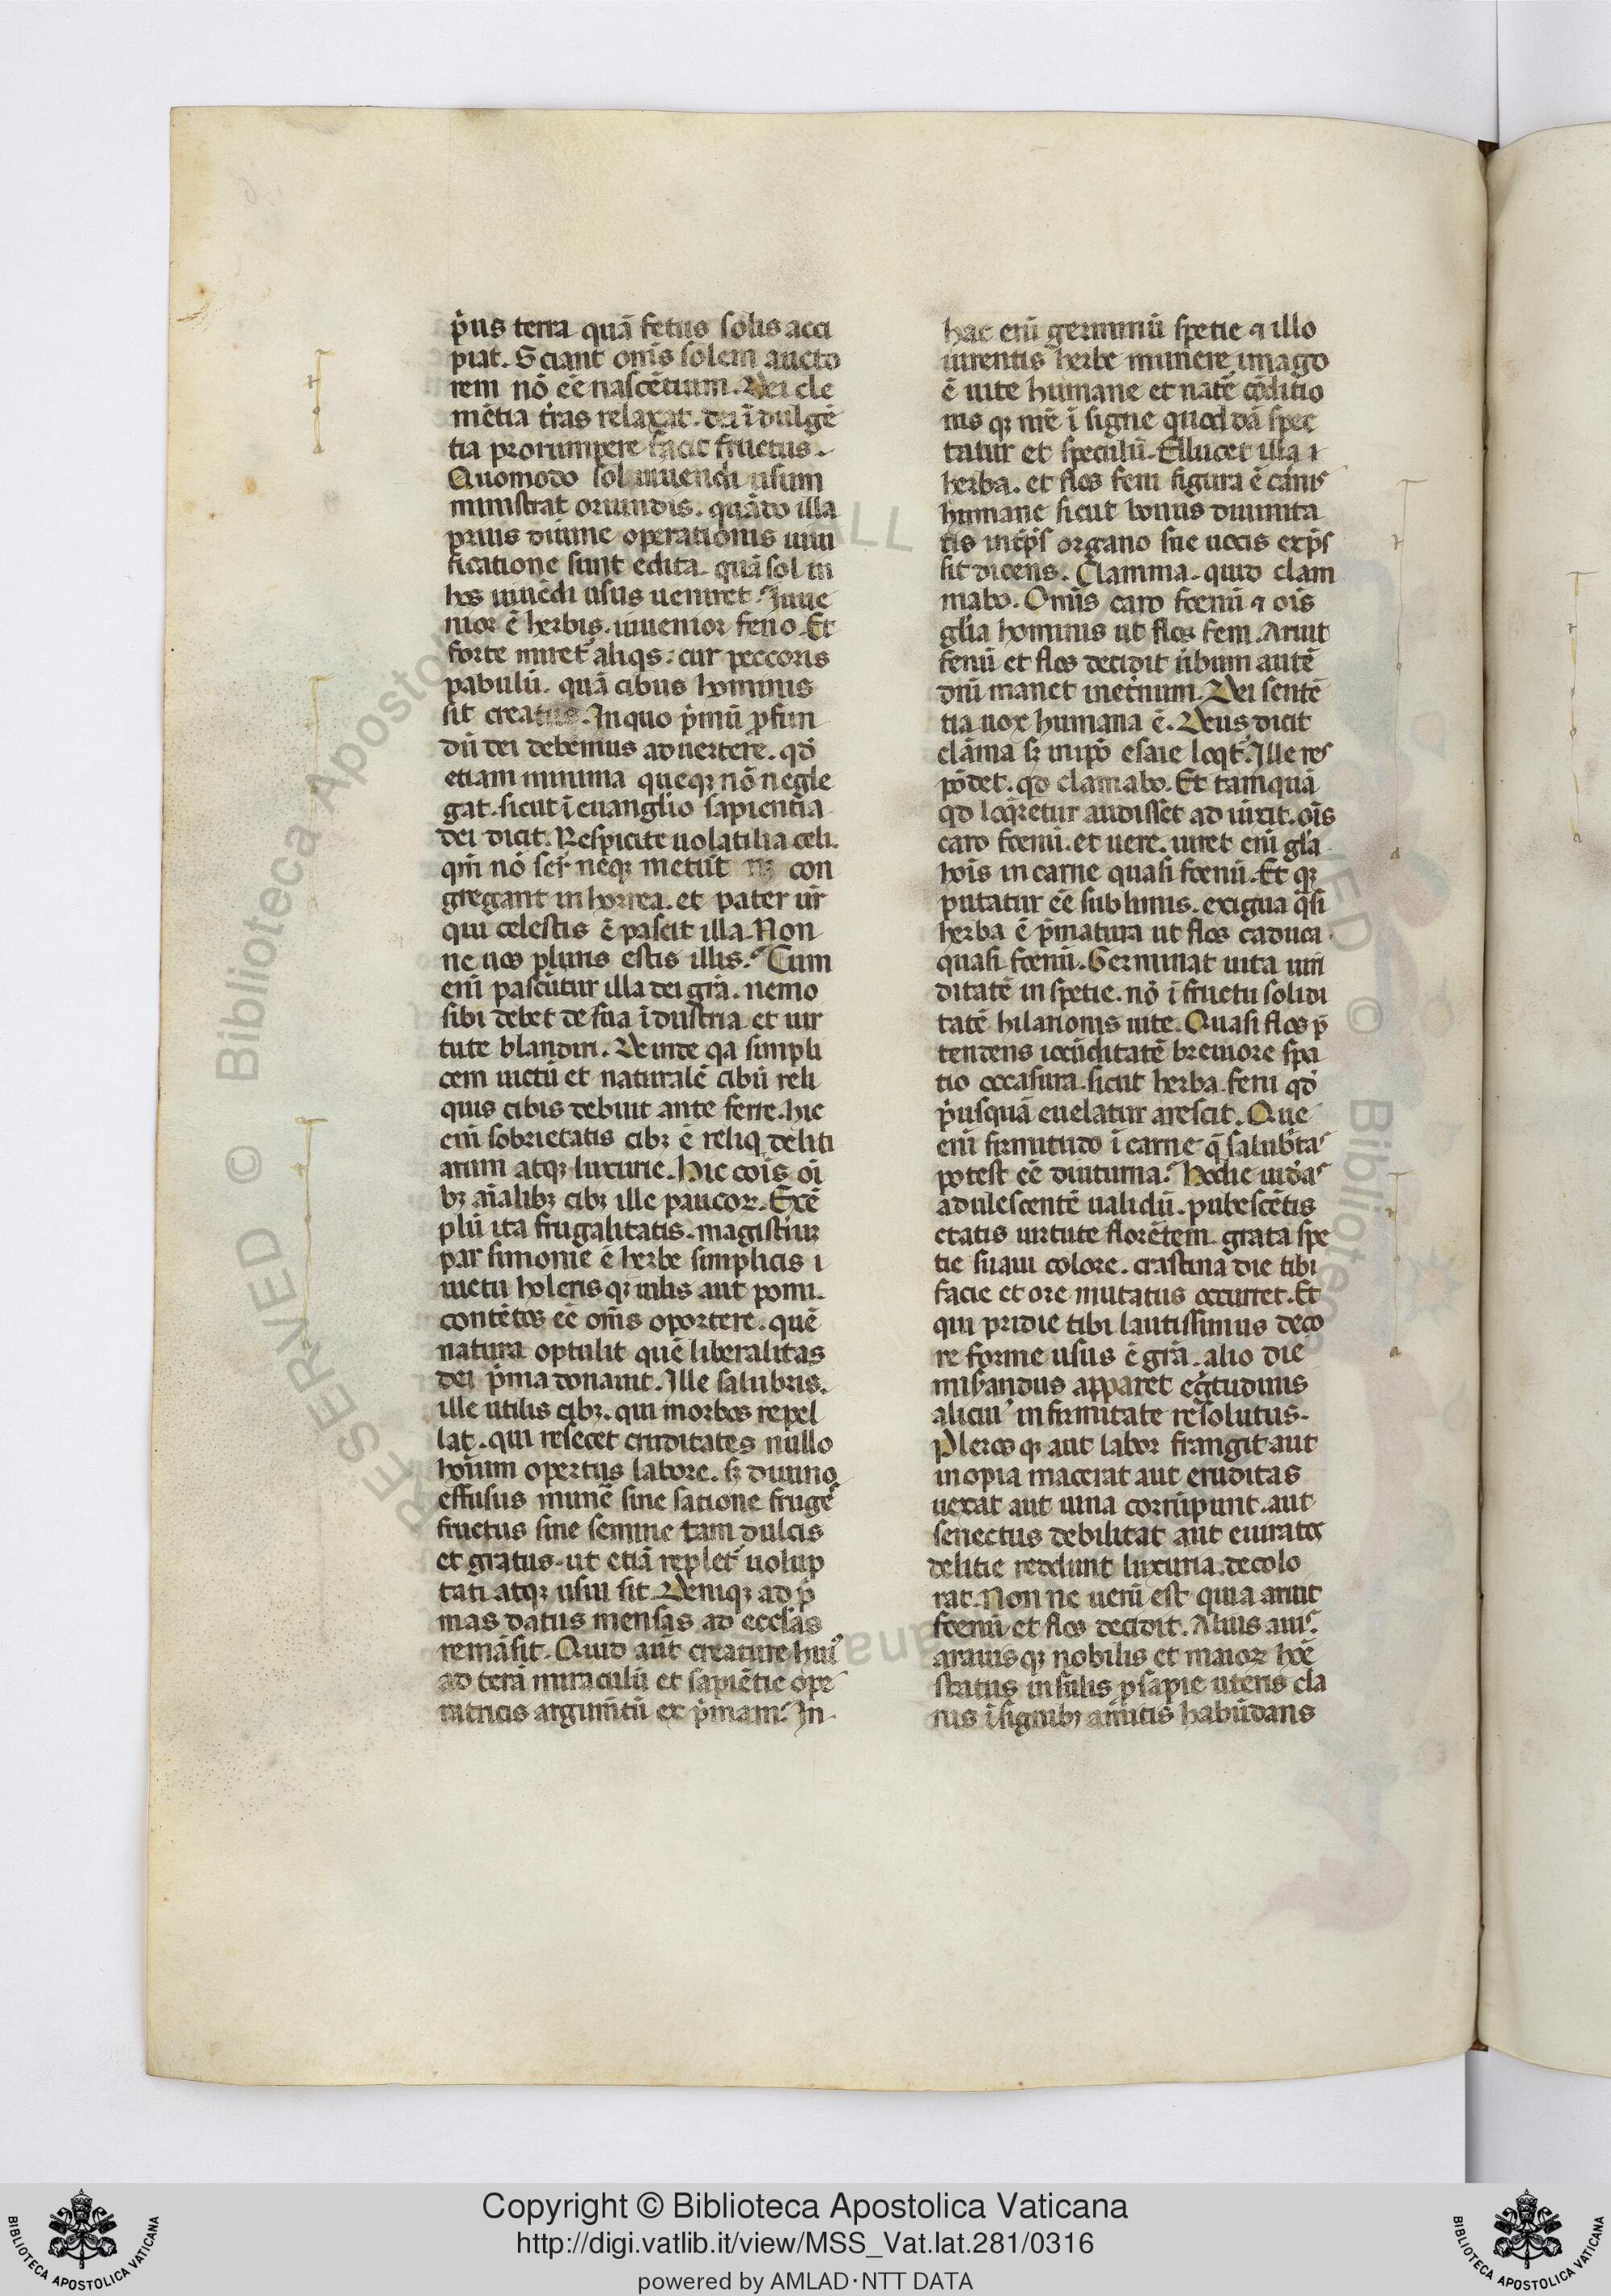 p̃us terra quã fetus solis acci
piat. Sciant om̃s solem aucto
rem nõ eẽ nascẽtium. Dei cle
mẽtia t̃ras relaxat. dei ĩdulgẽ
tia prorumpere facit fructus.
Quomodo sol uiuendi usum
ministrat oriundis. quãdo illa
prius diuine operationis uiui
ficatione sunt edita. quã sol in
hos uiuẽdi usus ueniret. Iuue
nior ẽ herbis. iuuenior feno. Et
forte miret̃ aliqs: cur peccoris
pabulũ. quã cibus hominis
sit creatus. In quo p̃mũ ꝓfun
dũ dei debemus aduertere. qd̃
etiam minima queqꝫ nõ negle
gat. sicut ĩ euanglio sapientia
dei dicit. Respicite uolatilia celi.
qm̃ nõ ser̃ neqꝫ metũt con
gregant in horrea. et pater ur̃
qui celestis ẽ pascit illa. Non
ne uos pluris estis illis. Cum
eni pascũtur illa dei gr̃a. nemo
sibi debet de sua ĩdustria et uir
tute blandiri. Deinde qa simpli
cem uictũ et naturalẽ cibũ reli
quis cibis debuit ante ferre. hic
eni sobrietatis cibꝫ ẽ reliqꝫ deliti
arum atqꝫ luxurie. Hic cois̃ oĩ
bꝫ aĩalibꝫ cibꝫ ille paucoꝝ. Exẽ
plũ ita frugalitatis. magistriũ
par simonie ẽ herbe simplicis i
uictu holeris qꝫ uilis aut pomi.
contẽtos eẽ om̃s oportere. quẽ
natura optulit quẽ liberalitas
dei p̃ma donauit. Ille salubris.
ille utilis cibꝫ. qui morbos repel
lat. qui resecet cruditates nullo
hoĩum opertus labore. sꝫ diuino
effusus munẽ sine satione frugẽ
fructus sine semine tam dulcis
et gratus. ut etiã replet̃ uolup
tati atqꝫ usui sit. Deniqꝫ ad p̃
mas datus mensas ad eccl̃as
remãsit. Quid aũt creature hui⁹
ad terã miraculũ et sapiẽtie ope
ratricis argumẽtũ ex p̃mam. In
hac eni germinũ spetie ⁊ illo
uirentis herbe munere imago
ẽ uite humane et natẽ cõditio
nis qꝫ nr̃e ĩ signe quoddã spec
tatur et speculũ. Ellucet illa i
herba. et flos feni figura ẽ carnis
humane sicut bonus diuinita
tis int̃p̃s organo sue uocis exp̃s
sit dicens. Clamma. quid clam
mabo. Omis̃ caro foenũ ⁊ ois̃
gl̃ia hominis ut flos feni. Aruit
fenũ et flos decidit ũbum autẽ
dñi manet inet̃num. Dei sentẽ
tia uox humana ẽ. Deus dicit
clãma sꝫ in ipõ esaie loqt̃. Ille res
põdet. qd clamabo. Et tamquã
qd loq̃retur audisset ad iũxit. ois̃
caro foenũ. et uere. uiret eni gl̃a
hois̃ in carne quasi foenũ. Et qꝫ
putatur eẽ sublimis. exigua q̃si
herba ẽ p̃matura ut flos caduca
quasi foenũ. Germinat uita uiri
ditatẽ in spetie. nõ ĩ fructu solidi
tatẽ hilarionis uite. Quasi flos p̃
tendens iocũditatẽ breuiore spa
tio occasura. sicut herba feni qd̃
p̃usquã euelatur arescit. Que
eni firmitudo ĩ carne q̃ salubritas
potest eẽ diuturna. Hodie uidas
adulescentẽ ualidũ. pubescẽtis
etatis uirtute florẽtem. grata spe
tie suaui colore. crastina die tibi
facie et ore mutatus occurret. Et
qui pridie tibi lautissimus deco
re forme uisus ẽ gr̃a. alio die
miserandus apparet eg̃tudinis
alicui⁹ infirmitate resolutus.
Pleros qꝫ aut labor frangit aut
inopia macerat aut cruditas
uexat aut uina corrũpunt. aut
senectus debilitat aut euiratos
delitie reddunt luxuria. decolo
rat. Non ne uerũ est quia aruit
foenũ et flos decidit. Alius auis.
arauisqꝫ nobilis et maioꝝ hoẽ
status insulis ꝓsapie ueteris cla
rus ĩsignibꝫ amicis habũdans
Copyright © Biblioteca Apostolica Vaticana
http://digi.vatlib.it/view/MSS_Vat.lat.281/0316
powered by AMLAD·NTT DATA